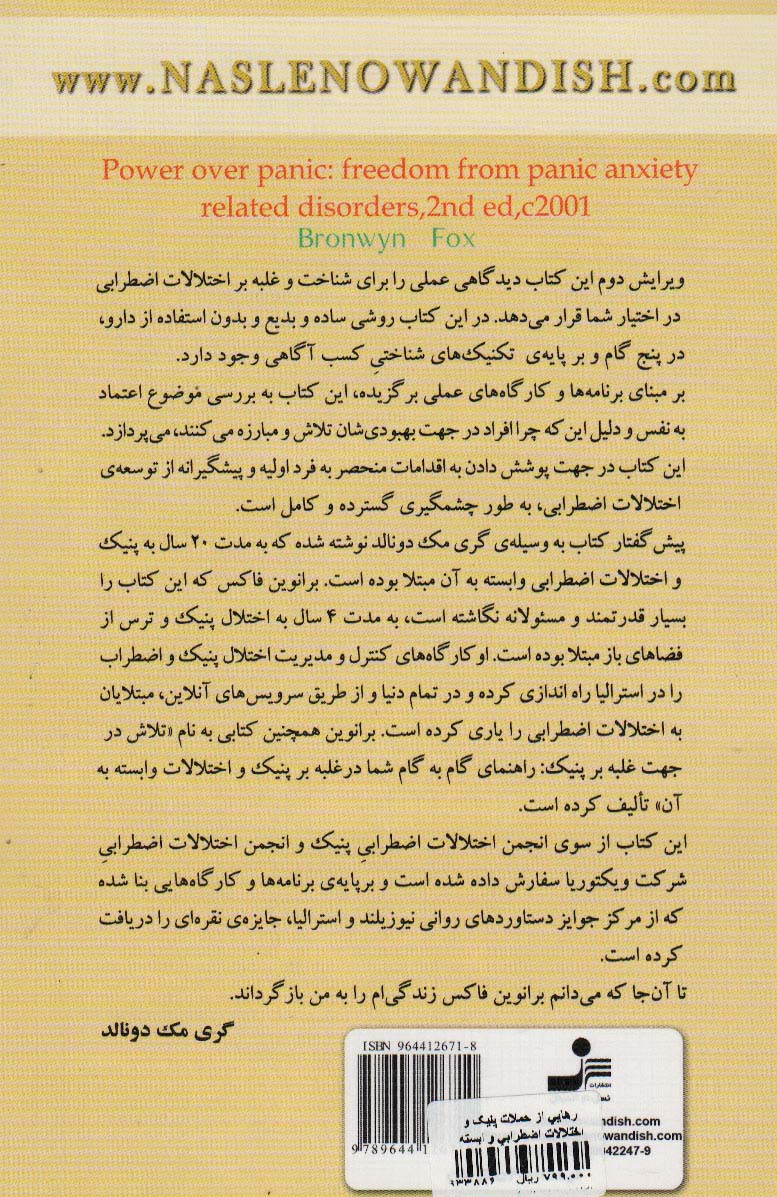 www.NASLENOWANDISH.com
Power over panic: freedom from panic anxiety
related disorders,2nd ed,c2001
Bronwyn Fox
ویرایش دوم این کتاب دیدگاهی عملی را برای شناخت و غلبه بر اختلالات اضطرابی
در اختیار شما قرار می‌دهد. در این کتاب روشی ساده و بدیع و بدون استفاده از دارو،
در پنج گام و بر پایه‌ی تکنیک‌های شناختیِ کسب آگاهی وجود دارد.
بر مبنای برنامه‌ها و کارگاه‌های عملی برگزیده، این کتاب به بررسی موضوع اعتماد
به نفس و دلیل این که چرا افراد در جهت بهبودی‌شان تلاش و مبارزه می‌کنند، می‌پردازد.
این کتاب در جهت پوشش دادن به اقدامات منحصر به فرد اولیه و پیشگیرانه از توسعه‌ی
اختلالات اضطرابی، به طور چشمگیری گسترده و کامل است.
پیش گفتار کتاب به وسیله‌ی گری مک دونالد نوشته شده که به مدت ۲۰ سال به پنیک
و اختلالات اضطرابی وابسته به آن مبتلا بوده است. برانوین فاکس که این کتاب را
بسیار قدرتمند و مسئولانه نگاشته است، به مدت ۴ سال به اختلال پنیک و ترس از
فضاهای باز مبتلا بوده است. او کارگاه‌های کنترل و مدیریت اختلال پنیک و اضطراب
را در استرالیا راه اندازی کرده و در تمام دنیا و از طریق سرویس‌های آنلاین، مبتلایان
به اختلالات اضطرابی را یاری کرده است. برانوین همچنین کتابی به نام «تلاش در
جهت غلبه بر پنیک: راهنمای گام به گام شما در غلبه بر پنیک و اختلالات وابسته به
آن» تألیف کرده است.
این کتاب از سوی انجمن اختلالات اضطرابیِ پنیک و انجمن اختلالات اضطرابیِ
شرکت ویکتوریا سفارش داده شده است و برپایه‌ی برنامه‌ها و کارگاه‌هایی بنا شده
که از مرکز جوایز دستاوردهای روانی نیوزیلند و استرالیا، جایزه‌ی نقره‌ای را دریافت
کرده است.
تا آن‌جا که می‌دانم برانوین فاکس زندگی‌ام را به من بازگرداند.
گری مک دونالد
ISBN 964412671-8
9 789644 1
انتشارات
ndish.com
owandish.com
042247-9
رهایی از حملات پنیک و
اختلالات اضطرابی و ابسته
۹۳۳۸۸۶ ۷۹۹.۰۰۰ ریال